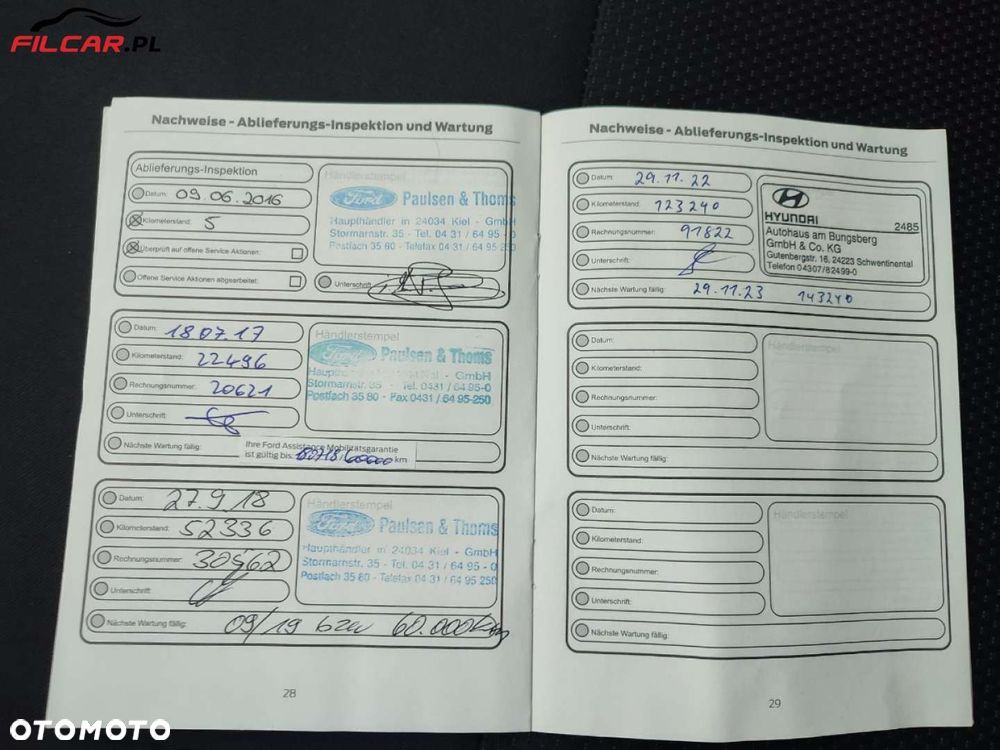 FILCAR.PL
Nachweise - Ablieferungs-Inspektion und Wartung
Ablieferungs-Inspektion
Datum: 09.06.2016
Kilometerstand: 5
Überprüft auf offene Service Aktionen:
Offene Service Aktionen abgearbeitet:
Händlerstempel
Ford Paulsen & Thoms
Haupthändler in 24034 Kiel - GmbH
Stormarnstr. 35 - Tel. 04 31 / 64 95 - 0
Postfach 35 80 - Telefax 04 31 / 64 95 250
Unterschrift:
Datum: 18.07.17
Kilometerstand: 22496
Rechnungsnummer: 20621
Unterschrift:
Händlerstempel
Ford Paulsen & Thoms
Kiel - GmbH
Stormarnstr. 35 - Tel. 0431 / 64 95-0
Postfach 35 80 - Fax 0431 / 64 95-250
Nächste Wartung fällig:
Ihre Ford Assistance Mobilitätsgarantie
ist gültig bis: 180718/60000 km
Datum: 27.9.18
Kilometerstand: 52336
Rechnungsnummer: 30562
Unterschrift:
Händlerstempel
Ford Paulsen & Thoms
Haupthändler in 24034 Kiel - GmbH
Stormarnstr. 35 - Tel. 04 31 / 64 95 - 0
Postfach 35 80 - Telefax 04 31 / 64 95 250
Nächste Wartung fällig: 09/19 bzw 60.000km
28
Nachweise - Ablieferungs-Inspektion und Wartung
Datum: 29.11.22
Kilometerstand: 123240
Rechnungsnummer: 91822
Unterschrift:
HYUNDAI 2485
Autohaus am Bungsberg
GmbH & Co. KG
Gutenbergstr. 16, 24223 Schwentinental
Telefon 04307/82499-0
Nächste Wartung fällig: 29.11.23 143240
Datum:
Kilometerstand:
Rechnungsnummer:
Unterschrift:
Händlerstempel
Nächste Wartung fällig:
Datum:
Kilometerstand:
Rechnungsnummer:
Unterschrift:
Händlerstempel
Nächste Wartung fällig:
29
OTOMOTO